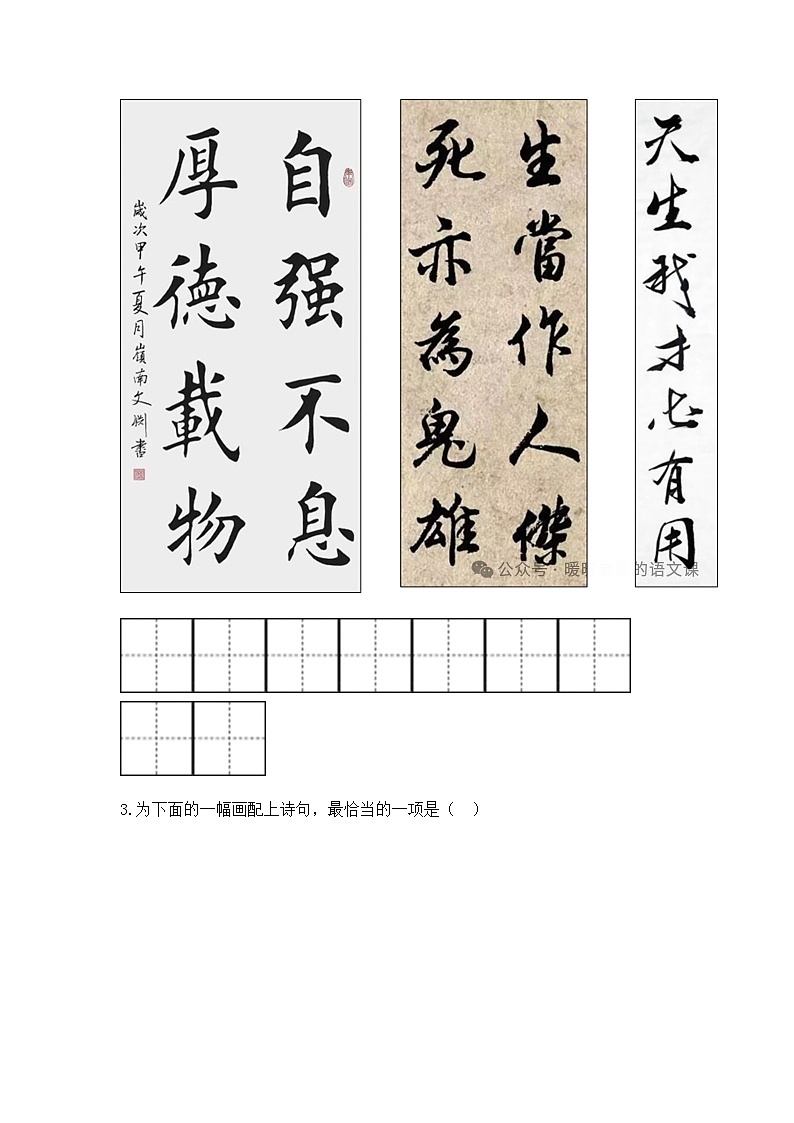 自强不息
厚德載物
歲次甲午夏月嶺南文
書
生當作人傑
死亦為鬼雄
天生我才必有用
公众号·暖
的语文课
3.为下面的一幅画配上诗句，最恰当的一项是（ ）